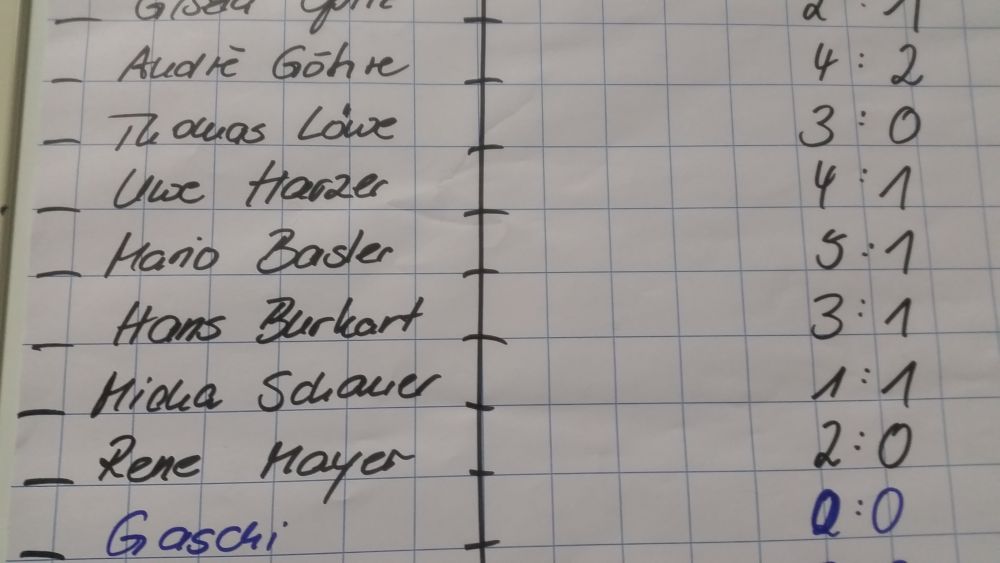 2:1
Andrè Göhre 4:2
Thomas Löwe 3:0
Uwe Harzer 4:1
Mario Basler 5:1
Hans Burkart 3:1
Micha Schauer 1:1
Rene Mayer 2:0
Gaschi :0